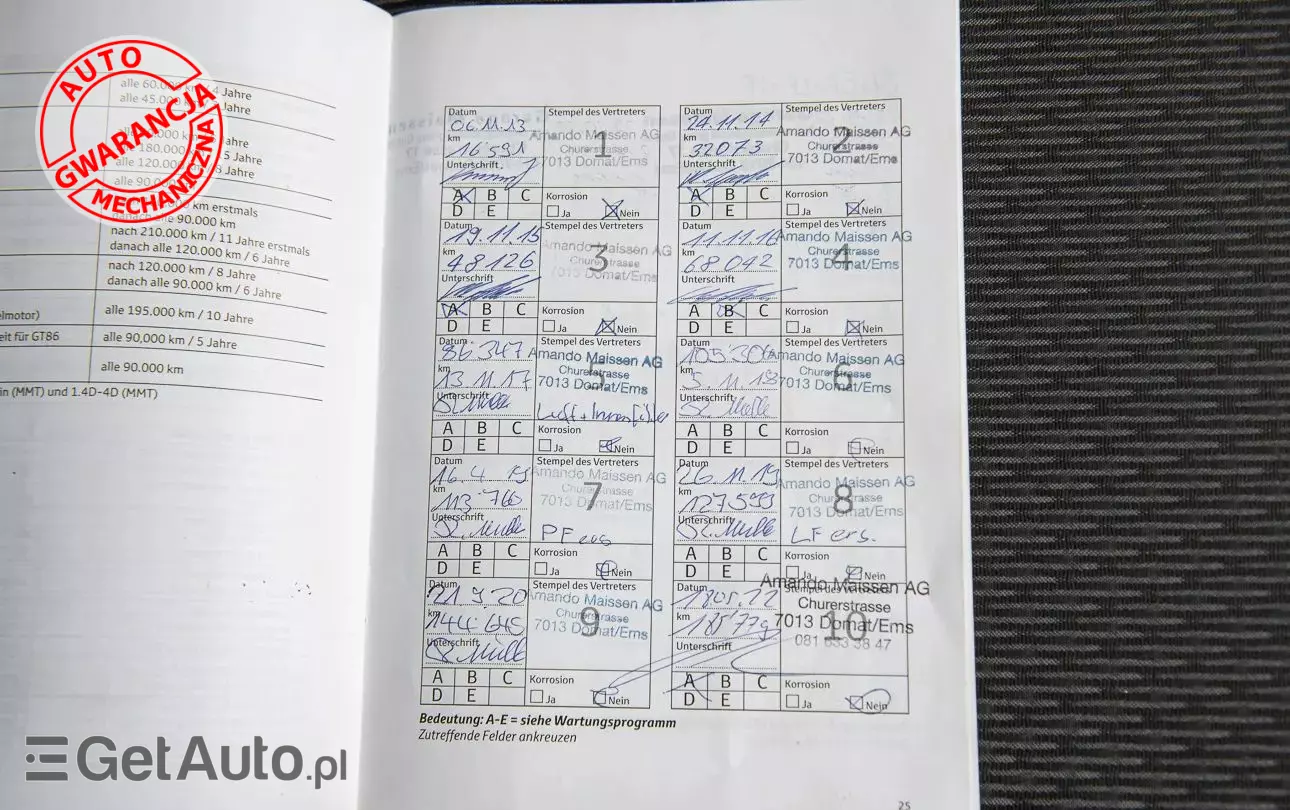 AUTO
GWARANCJA
MECHANICZNA
alle 60.0
alle 45.0
Jahre
180.000
alle 120.0
alle 90.
km erstmals
90.000 km
nach 210.000 km / 11 Jahre erstmals
danach alle 120.000 km / 6 Jahre
nach 120.000 km / 8 Jahre
danach alle 90.000 km / 6 Jahre
elmotor)
alle 195.000 km / 10 Jahre
eit für GT86
alle 90,000 km / 5 Jahre
alle 90.000 km
in (MMT) und 1.4D-4D (MMT)
Datum
Stempel des Vertreters
06.11.13
1
km
16591
Amando Maissen AG
Churerstrasse
7013 Domat/Ems
Unterschrift
A B C
D E
Korrosion
Ja Nein
Datum
Stempel des Vertreters
24.11.14
2
km
32073
Amando Maissen AG
Churerstrasse
7013 Domat/Ems
Unterschrift
A B C
D E
Korrosion
Ja Nein
Datum
Stempel des Vertreters
19.11.15
3
km
48126
Amando Maissen AG
Churerstrasse
7013 Domat/Ems
Unterschrift
A B C
D E
Korrosion
Ja Nein
Datum
Stempel des Vertreters
11.11.16
4
km
68042
Amando Maissen AG
Churerstrasse
7013 Domat/Ems
Unterschrift
A B C
D E
Korrosion
Ja Nein
Datum
Stempel des Vertreters
86'347
5
km
13.11.17
Amando Maissen AG
Churerstrasse
7013 Domat/Ems
Unterschrift
Luft + Innenfilter
A B C
D E
Korrosion
Ja Nein
Datum
Stempel des Vertreters
105'306
6
km
5.11.18
Amando Maissen AG
Churerstrasse
7013 Domat/Ems
Unterschrift
A B C
D E
Korrosion
Ja Nein
Datum
Stempel des Vertreters
16.4.19
7
km
113'766
Amando Maissen AG
Churerstrasse
7013 Domat/Ems
Unterschrift
PF
A B C
D E
Korrosion
Ja Nein
Datum
Stempel des Vertreters
26.11.19
8
km
127'599
Amando Maissen AG
Churerstrasse
7013 Domat/Ems
Unterschrift
LF ers.
A B C
D E
Korrosion
Ja Nein
Datum
Stempel des Vertreters
21.9.20
9
km
144'645
Amando Maissen AG
Churerstrasse
7013 Domat/Ems
Unterschrift
A B C
D E
Korrosion
Ja Nein
Datum
Stempel des Vertreters
10
km
Amando Maissen AG
Churerstrasse
7013 Domat/Ems
081 633 38 47
Unterschrift
A B C
D E
Korrosion
Ja Nein
Bedeutung: A-E = siehe Wartungsprogramm
Zutreffende Felder ankreuzen
25
GetAuto.pl